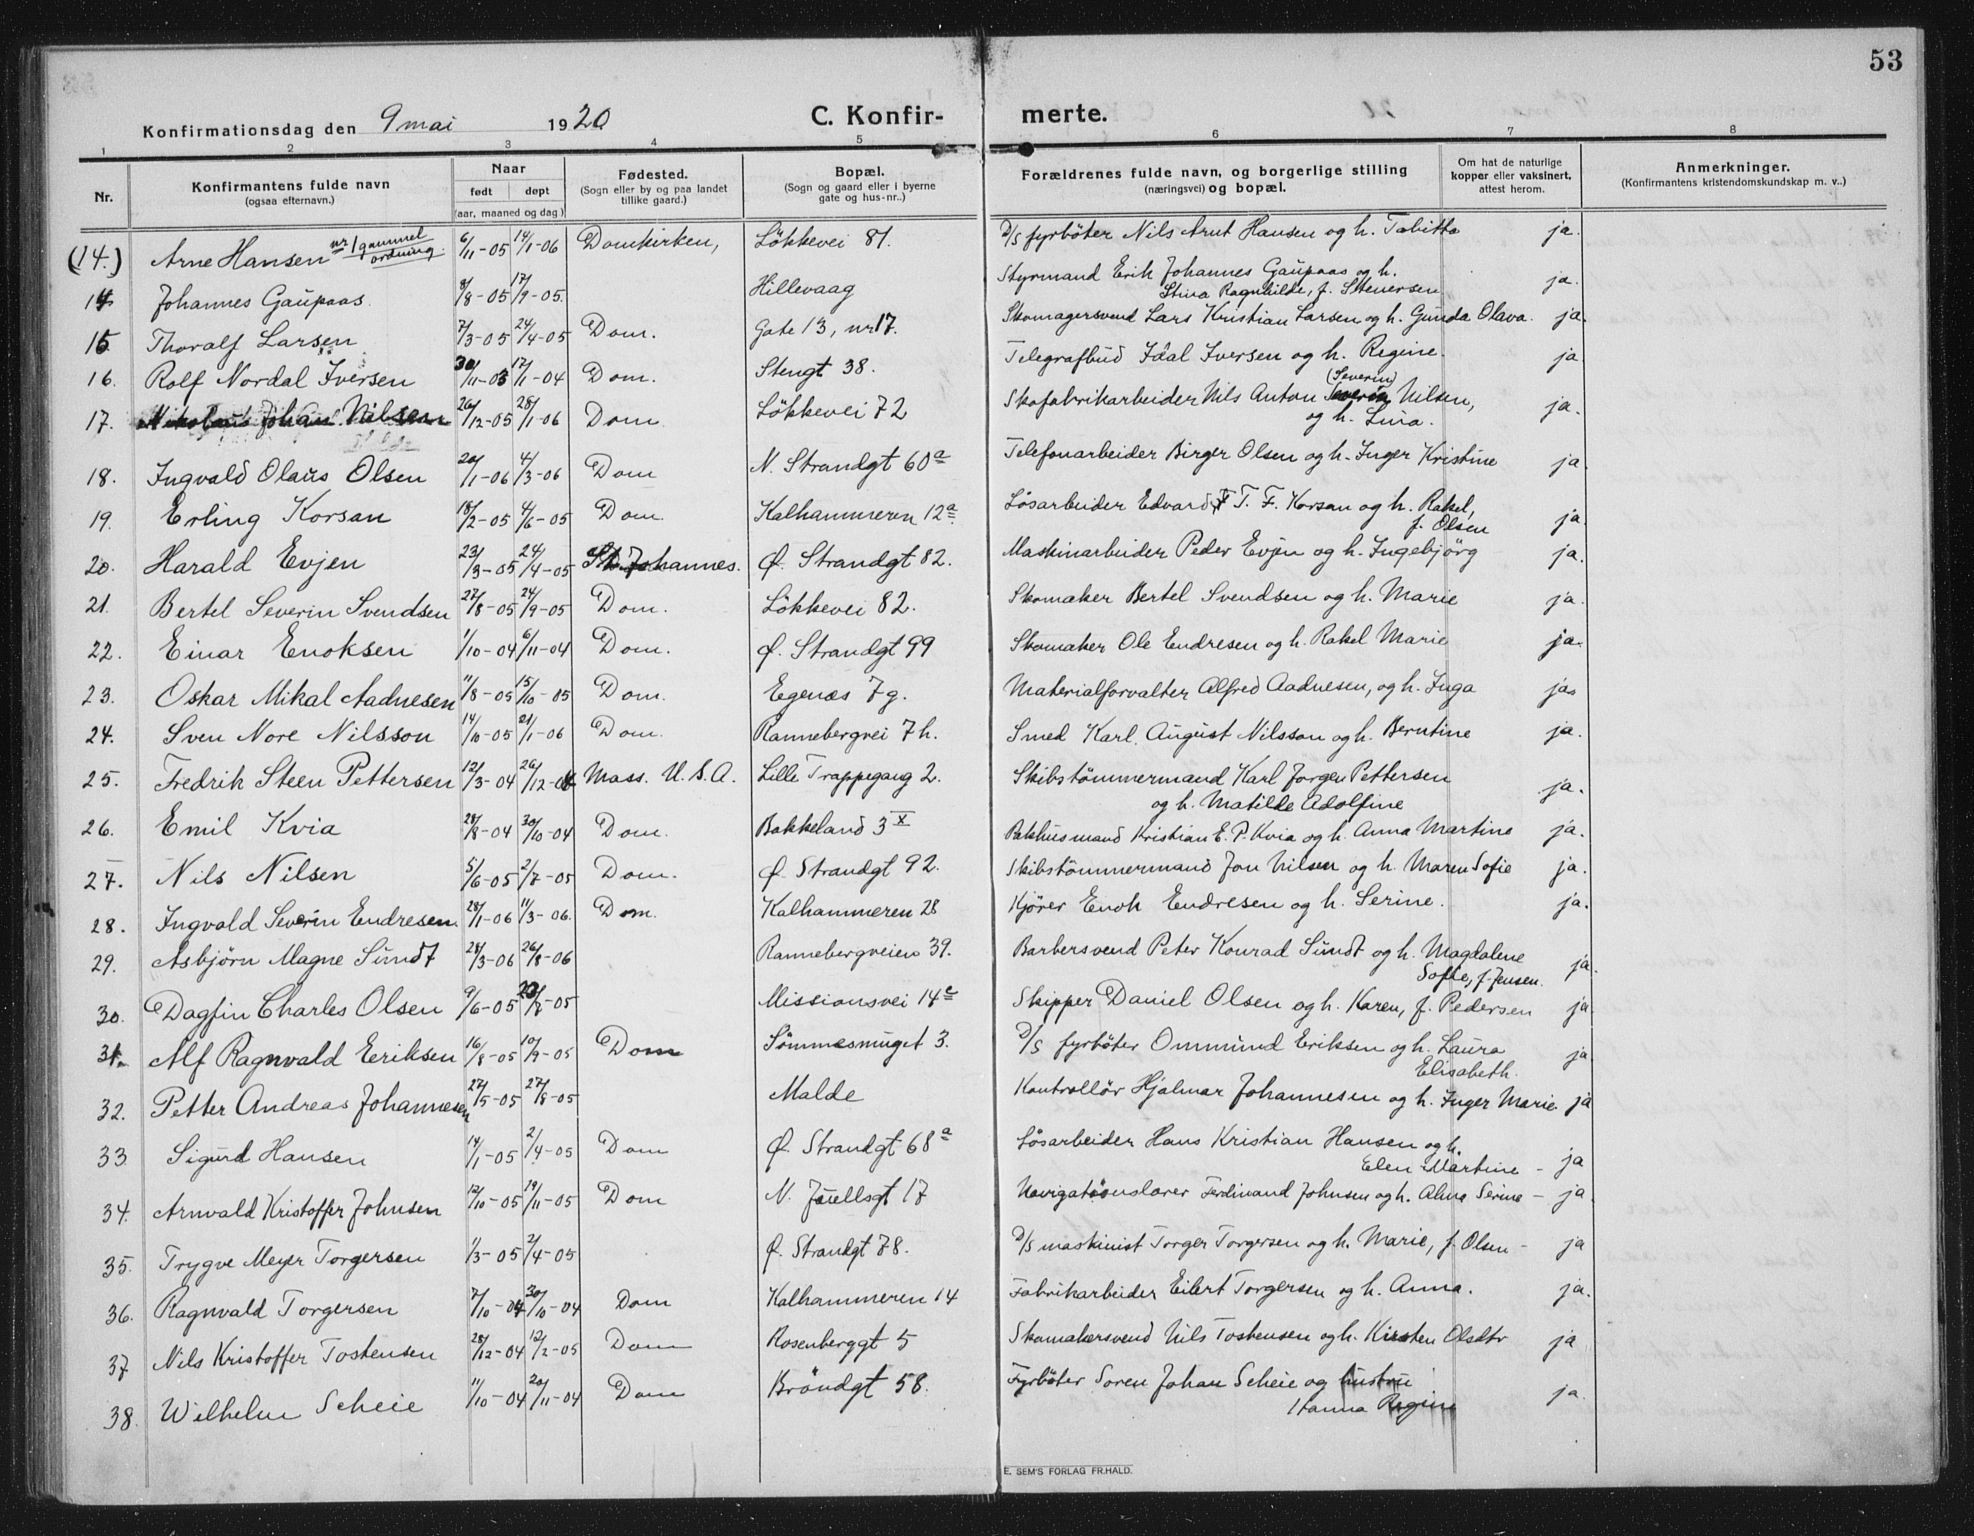 53
Konfirmationsdag den 9 mai 1920 C. Konfir- merte.
1 2 3 4 5 6 7 8
Nr. Konfirmantens fulde navn (ogsaa efternavn.) Naar født døpt (aar, maaned og dag) Fødested. (Sogn eller by og paa landet tillike gaard.) Bopæl. (Sogn og gaard eller i byerne gate og hus-nr..) Forældrenes fulde navn, og borgerlige stilling (næringsvei) og bopæl. Om hat de naturlige kopper eller vaksinert, attest herom. Anmerkninger. (Konfirmantens kristendomskundskap m. v..)
(14.) Arne Hansen nr 1 gammel ordning 6/11-05 14/1-06 Domkirken, Lökkevei 81. D/S fyrböter Nils Arnt Hansen og h. Tabitta ja.
14 Johannes Gaupaas 8/8-05 17/9-05. Hillevaag Styrmand Erik Johannes Gaupaas og h.
Stina Ragnhilde, f. Stenersen ja.
15 Thoralf Larsen 7/3-05 24/4-05 Dom. Gate 13, nr 17. Skomagersvend Lars Kristian Larsen og h. Gunda Olava. ja.
16. Rolf Nordal Iversen 30/11-03 17/1-04 Dom. Stengt 38. Telegrafbud Idal Iversen og h. Regine. ja
17. Nikolaus Johan Nilsen 26/12-05 28/1-06 Dom. Lökkevei 72 Skofabrikarbeider Nils Anton (Severin) Nilsen,
og h. Lina. ja.
18. Ingvald Olaus Olsen 20/1-06 4/3-06 Dom N. Strandgt 60a Telefonarbeider Birger Olsen og h. Inger Kristine ja
19. Erling Korsan 18/2-05 4/6-05 Dom. Kalhammeren 12a Lösarbeider Edvard T. F. Korsan og h. Rakel,
f. Olsen ja
20. Harald Evjen 23/3-05 24/4-05 St. Johannes. Ø. Strandgt 82. Maskinarbeider Peder Evjen og h. Ingebjörg ja.
21. Bertel Severin Svendsen 27/8-05 24/9-05 Dom. Lökkevei 82. Skomaker Bertel Svendsen og h. Marie ja.
22. Einar Enoksen 1/10-04 6/11-04 Dom. Ø. Strandgt 99 Skomaker Ole Endresen og h. Rakel Marie ja.
23. Oskar Mikal Aadnesen 11/8-05 15/10-05 Dom. Egenæs 7g. Materialforvalter Alfred Aadnesen, og h. Inga ja
24. Sven Nore Nilsson 14/10-05 21/1-06 Dom. Rannebergvei 7h. Smed Karl August Nilsson og h. Berntine ja.
25. Fredrik Steen Pettersen 12/3-04 26/12-04 Mass. U.S.A. Lille Trappegang 2. Skibstömmermand Karl Jorgen Pettersen
og h. Matilde Adolfine ja.
26. Emil Kvia 28/8-04 30/10-04 Dom. Bakkeland 3 X Pakhusmand Kristian E. P. Kvia og h. Anna Martine ja.
27. Nils Nilsen 5/6-05 2/7-05 Dom. Ø. Strandgt 92. Skibstömmermand Jon Nilsen og h. Maren Sofie ja.
28. Ingvald Severin Endresen 28/1-06 11/3-06. Dom. Kalhammeren 28 Kjörer Enok Endresen og h. Serine. ja.
29. Asbjörn Magne Sundt 28/3-06 26/8-06 Rannebergveien 39. Barbersvend Peter Konrad Sundt og h. Magdalene
Sofie, f. Jensen. ja.
30. Dagfin Charles Olsen 9/6-05 -05 Missionsvei 14c Skipper Daniel Olsen og h. Karen, f. Pedersen ja
31. Alf Ragnvald Eriksen 16/8-05 10/9-05 Dom Sömmesmuget 3. D/S fyrböter Ommund Eriksen og h. Laura
Elisabeth. ja
32. Petter Andreas Johannesen 27/5-05 27/8-05 Malde Kontrollör Hjalmar Johannesen og h. Inger Marie ja
33 Sigurd Hansen 14/1-05 2/4-05 Dom Ø. Strandgt 68a Lösarbeider Hans Kristian Hansen og h.
Elen Martine - ja
34. Arnvald Kristoffer Johnsen 12/10-05 19/11-05 Dom N. Juellsgt 17 Navigationslærer Ferdinand Johnsen og h. Alma Serine - ja
35. Trygve Meyer Torgersen 1/3-05 2/4-05 Ø. Strandgt 78. D/S maskinist Torger Torgersen og h. Marie, f. Olsen - ja
36. Ragnvald Torgersen 7/10-04 30/10-04 Dom Kalhammeren 14 Fabrikarbeider Eilert Torgersen og h. Anna. ja.
37 Nils Kristoffer Tostensen 28/12-04 12/2-05 Dom Rosenberggt 5 Skomakersvend Nils Tostensen og h. Kirsten Olsdtr ja
38. Wilhelm Scheie 11/10-04 20/11-04 Dom Bröndgt 58. Fyrböter Soren Johan Scheie og hustru
Hanna Regine ja.
E. SEM'S FORLAG FR.HALD.